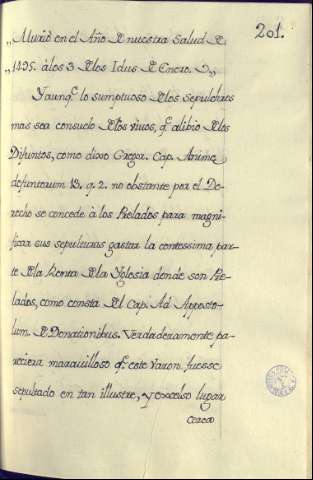 201.
„ Murió en el Año de nuestra Salud de
„ 1495. à los 3 de los Idus de Enero. „
Y aunq.e lo sumptuoso de los sepulchros
mas sea consuelo de los vivos, q.e alibio de los
Difuntos, como dixo Gregor. Cap. Animæ
defunctorum 13. q. 2. no obstante por el De-
recho se concede à los Prelados para magni-
ficar sus sepulturas gastar la centessima par-
te de la Renta de la Yglesia donde son Pre-
lados, como consta del Cap. Ad Apposto-
lum de Donationibus. Verdaderamente pa-
reciera maravilloso q.e este Varon fuesse
sepultado en tan illustre, y excelso lugar
cerca